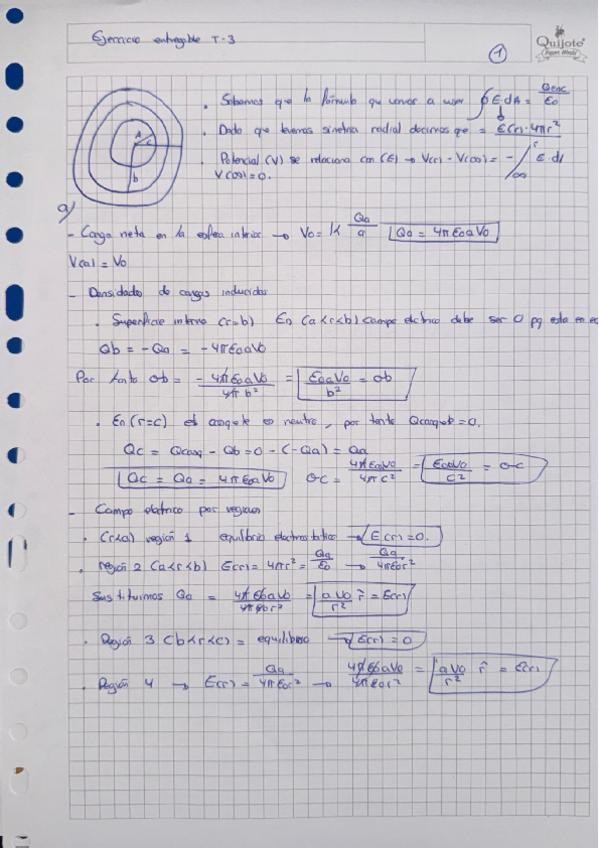 Ejercicio entregable T-3
1
Quijote
A
c
b
• Sabemos que la fórmula que vamos a usar ∮ E dA = Qenc / ε0
• Dado que tenemos simetria radial decimos que = E(r)·4πr²
• Potencial (V) se relaciona con (E) → V(r) - V(∞) = - ∫∞ʳ E dl
V(∞) = 0.
a)
- Carga neta en la esfera interior → V0 = K Qa / a Qa = 4πε0aV0
V(a) = V0
- Densidades de cargas inducidas
• Superficie interna (r=b) En (a<r<b) campo electrico debe ser 0 pq esta en
Qb = -Qa = -4πε0aV0
Por tanto σb = - 4πε0aV0 / 4πb² = ε0aV0 / b² = σb
• En (r=c) el casquete es neutro, por tanto Qcasq = 0.
Qc = Qcasq - Qb = 0 - (-Qa) = Qa
Qc = Qa = 4πε0aV0 σc = 4πε0aV0 / 4πc² = ε0aV0 / c² = σc
- Campo electrico por regiones
• (r<a) región 1 equilibrio electrostatico → E(r) = 0.
• región 2 (a<r<b) E(r) = 4πr² = Qa / ε0 → Qa / 4πε0r²
Sustituimos Qa = 4πε0aV0 / 4πε0r² = aV0 / r² r̂ = E(r)
• Región 3 (b<r<c) = equilibrio → E(r) = 0
• Región 4 → E(r) = Qa / 4πε0r² → 4πε0aV0 / 4πε0r² = aV0 / r² r̂ = E(r)